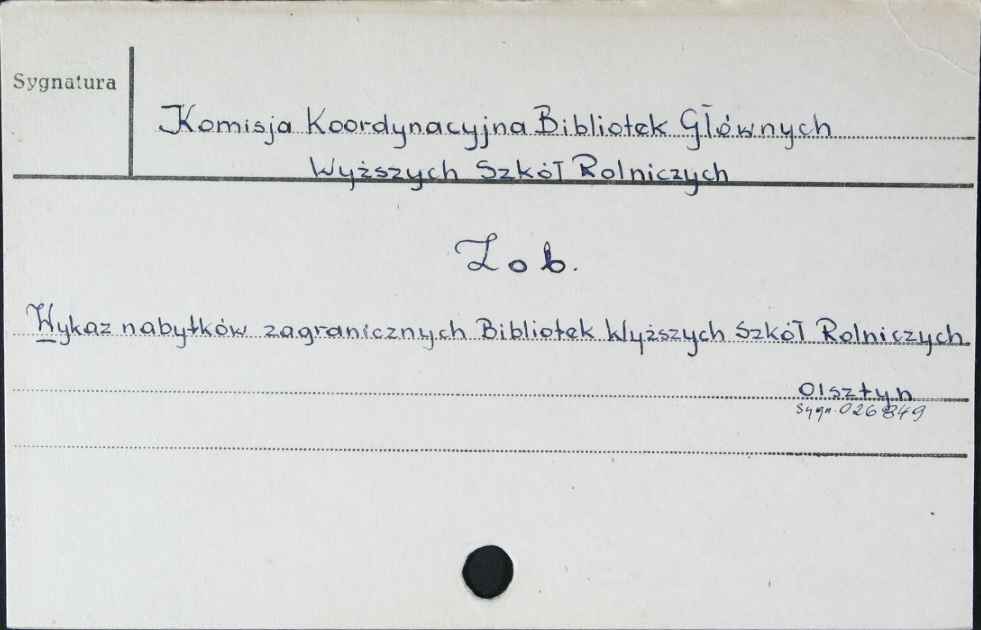 Sygnatura
Komisja Koordynacyjna Bibliotek Głównych
Wyższych Szkół Rolniczych
Zob.
Wykaz nabytków zagranicznych Bibliotek Wyższych Szkół Rolniczych.
Olsztyn
Sygn. 026849